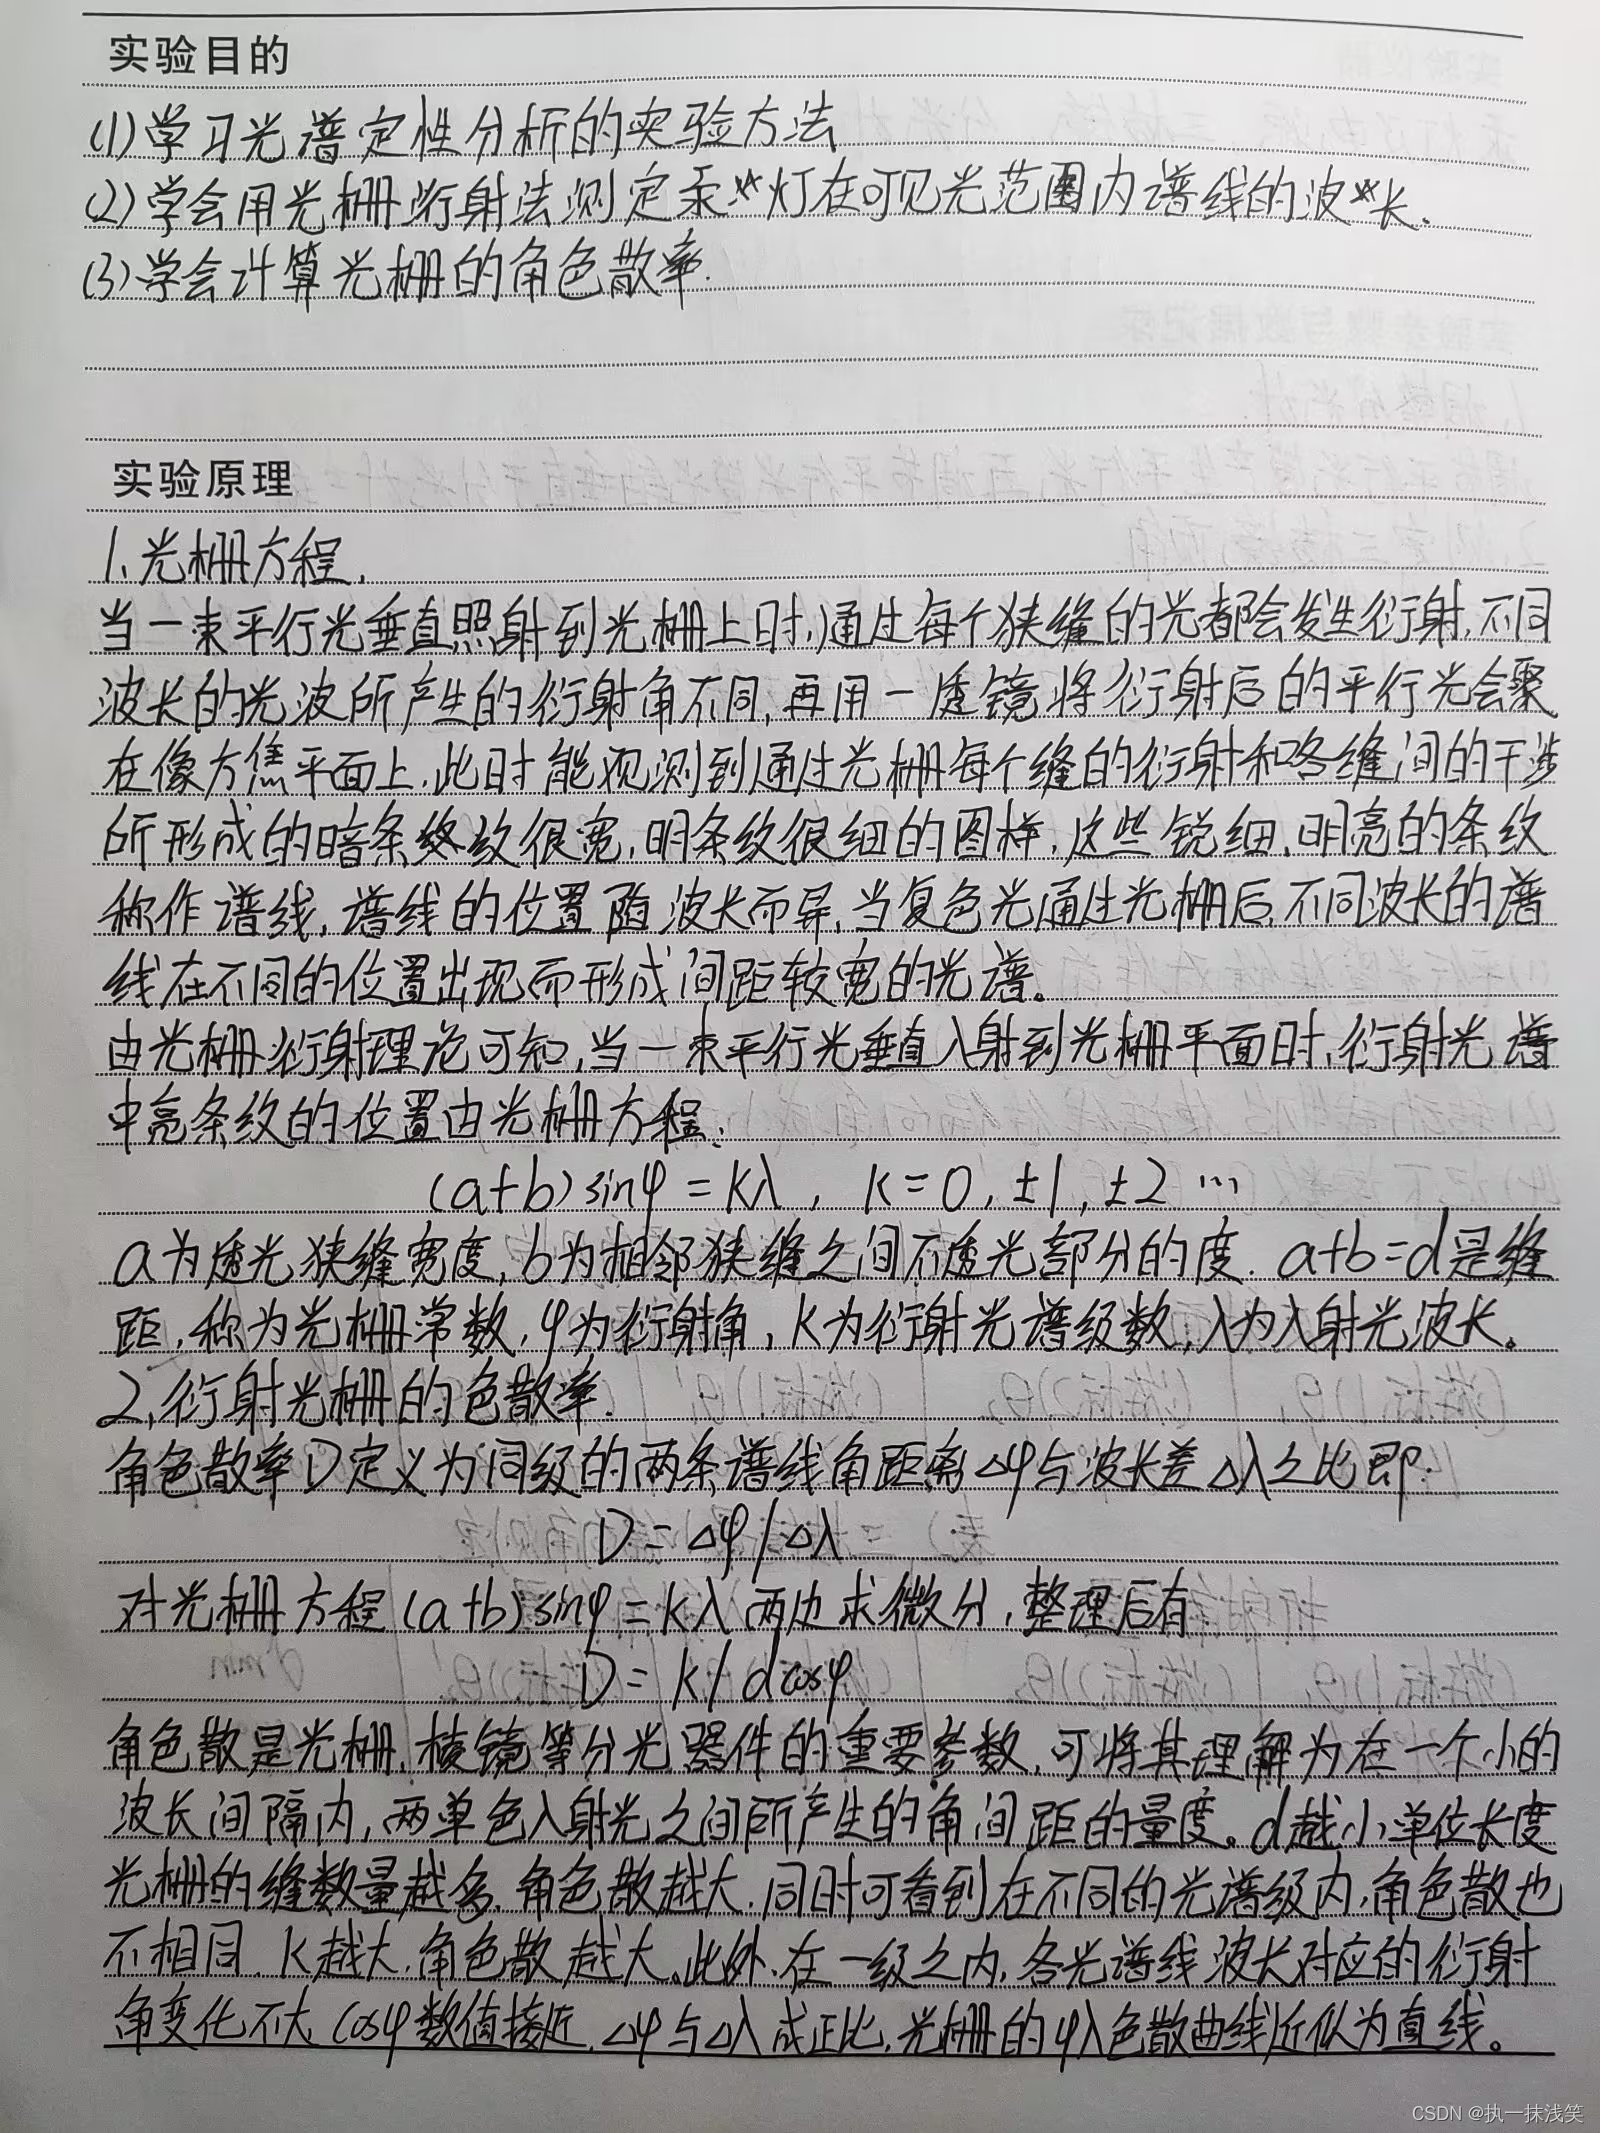 实验目的
(1)学习光谱定性分析的实验方法
(2)学会用光栅衍射法测定汞灯在可见光范围内谱线的波长.
(3)学会计算光栅的角色散率.
实验原理
1.光栅方程.
当一束平行光垂直照射到光栅上时,通过每个狭缝的光都会发生衍射,不同
波长的光波所产生的衍射角不同,再用一透镜将衍射后的平行光会聚
在像方焦平面上,此时能观测到通过光栅每个缝的衍射和各缝间的干涉
所形成的暗条纹很宽,明条纹很细的图样,这些锐细、明亮的条纹
称作谱线,谱线的位置随波长而异,当复色光通过光栅后,不同波长的谱
线在不同的位置出现而形成间距较宽的光谱。
由光栅衍射理论可知,当一束平行光垂直入射到光栅平面时,衍射光谱
中亮条纹的位置由光栅方程:
(a+b)sinφ=kλ, k=0,±1,±2 …
a为透光狭缝宽度,b为相邻狭缝之间不透光部分的度. a+b=d是缝
距,称为光栅常数,φ为衍射角,k为衍射光谱级数,λ为入射光波长。
2,衍射光栅的色散率.
角色散率D定义为同级的两条谱线角距离△φ与波长差△λ之比即:
D=△φ/△λ
对光栅方程(a+b)sinφ=kλ两边求微分,整理后有
D=k/dcosφ
角色散是光栅、棱镜等分光器件的重要参数,可将其理解为在一个小的
波长间隔内,两单色入射光之间所产生的角间距的量度。d越小,单位长度
光栅的缝数量越多,角色散越大,同时可看到在不同的光谱级内,角色散也
不相同,k越大,角色散越大。此外,在一级之内,各光谱线波长对应的衍射
角变化不大,cosφ数值接近,△φ与△λ成正比,光栅的φλ色散曲线近似为直线。
CSDN @执一抹浅笑